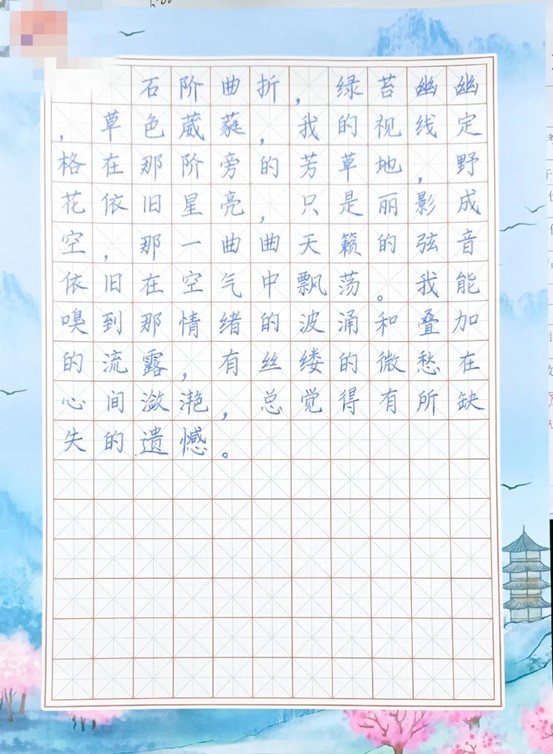 石阶曲折，绿苔幽幽
，草色葳蕤，我的视线定
格在那阶旁的芳草地，野
花依旧星亮，只是丽影成
空，那一曲曲天籁的弦音
依旧在空气中飘荡。我能
嗅到那情绪的波涌和叠加
的流露，有丝缕的微愁在
心间潋滟，总觉得有所缺
失的遗憾。